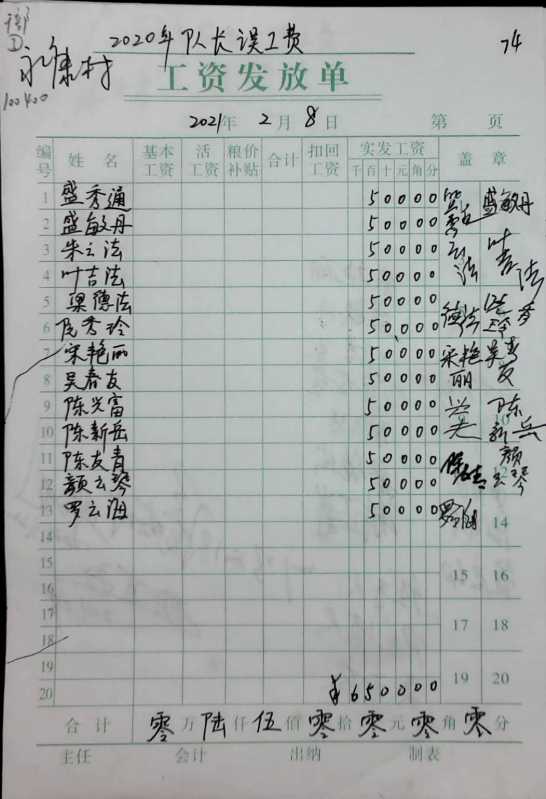 2020年队长误工费
74
永康村
100400
工资发放单
2021年 2月 8日 第 页
编号 姓名 基本工资 活工资 粮价补贴 合计 扣回工资 实发工资 盖章
千百十元角分
1 盛秀通 50000
2 盛敏丹 50000 盛敏丹
3 朱云法 50000 云法
4 叶吉法 50000 叶吉法
5 梁德法 50000 德法
6 秀玲 50000
7 宋艳丽 50000 宋艳丽
8 吴春友 50000 吴春友
9 陈兴富 50000
10 陈新岳 50000 陈新岳
11 陈友青 50000
12 颜云琴 50000 颜云琴
13 罗云海 50000
14 14
15 15 16
16
17 17 18
18
19 19 20
20 ¥650000
合计 零万陆仟伍佰零拾零元零角零分
主任 会计 出纳 制表